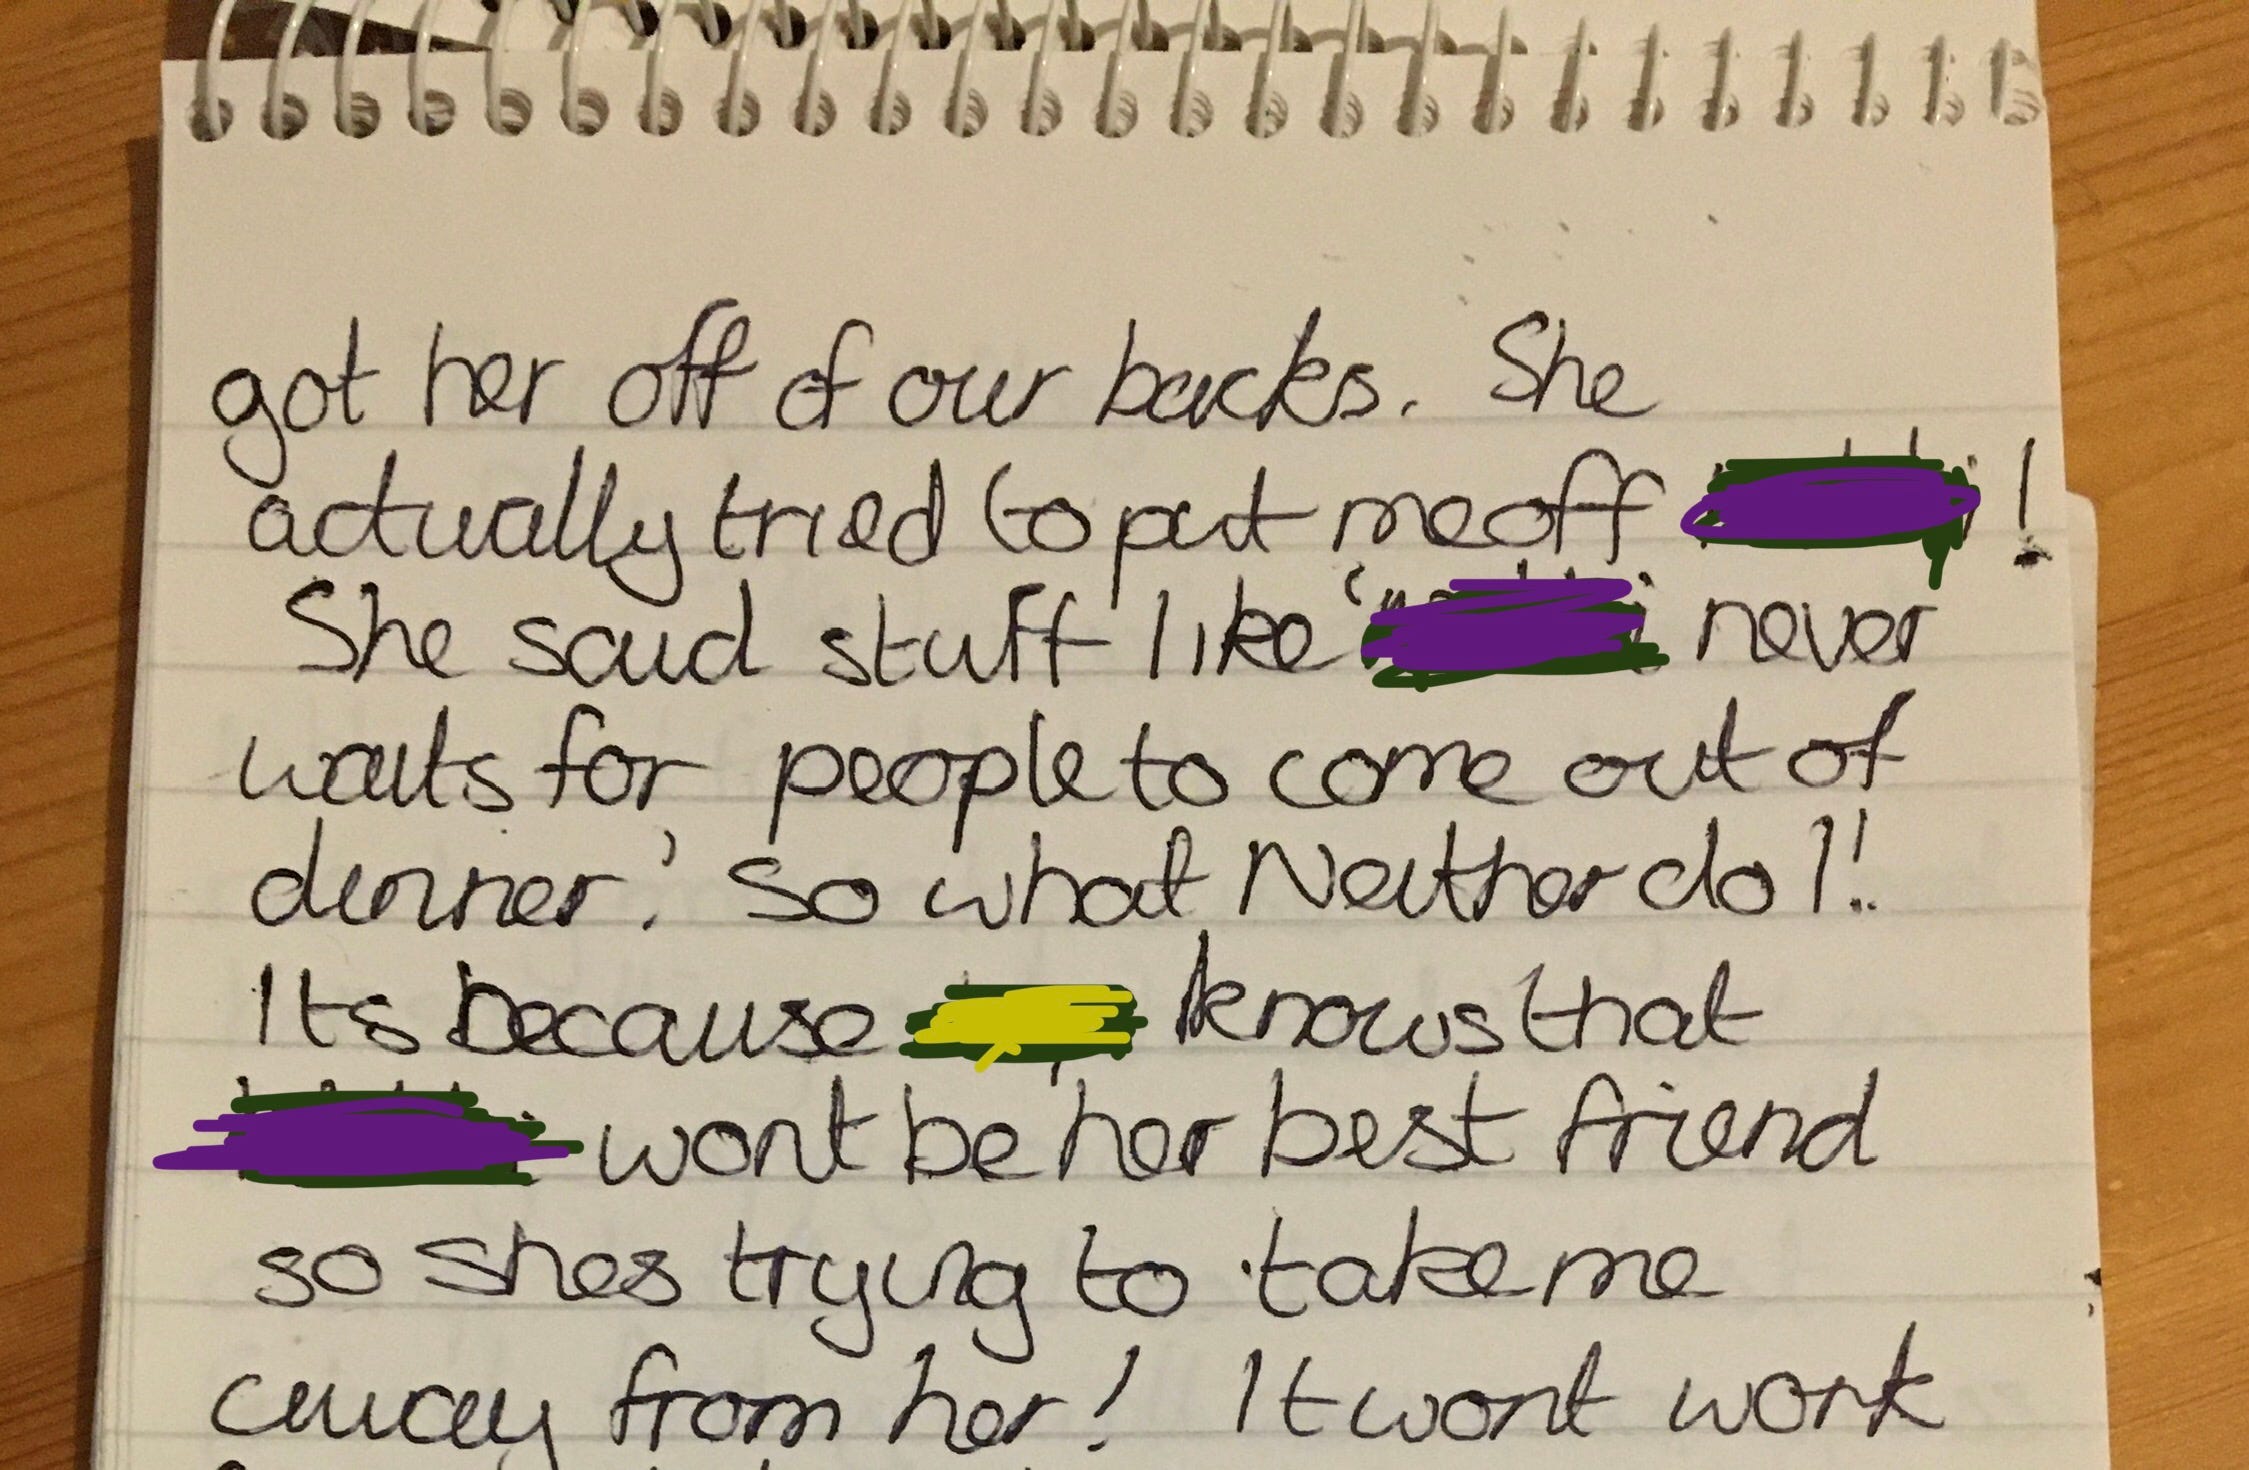 got her off of our backs. She
actually tried to put me off !
She said stuff like ' never
waits for people to come out of
dinner.' So what Neither do I!!
Its because knows that
wont be her best friend
so shes trying to take me
away from her! It wont work